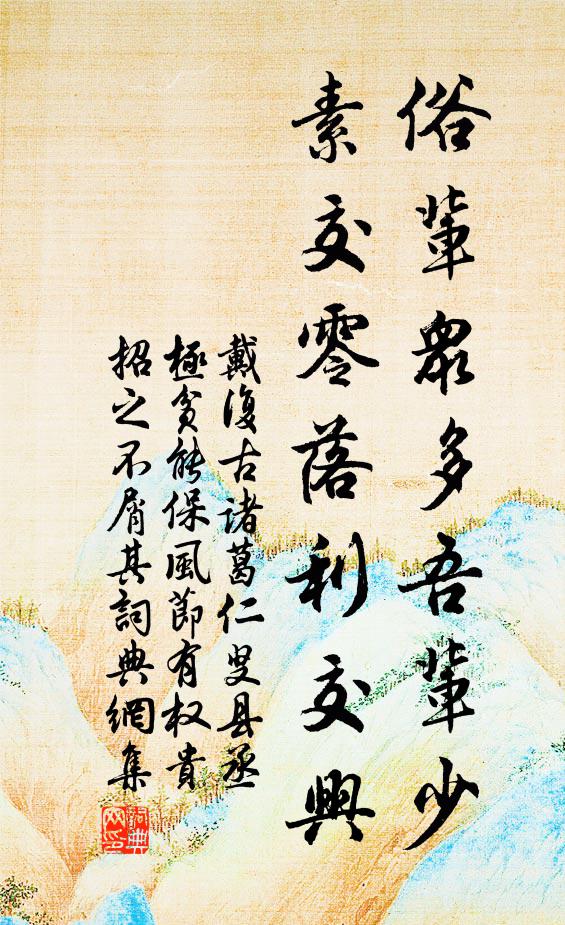 俗輩衆多吾輩少
素交零落利交興
戴復古諸葛仁叟县丞
極貧能保風節有权貴
招之不屑其詞典網集
詞典
网印